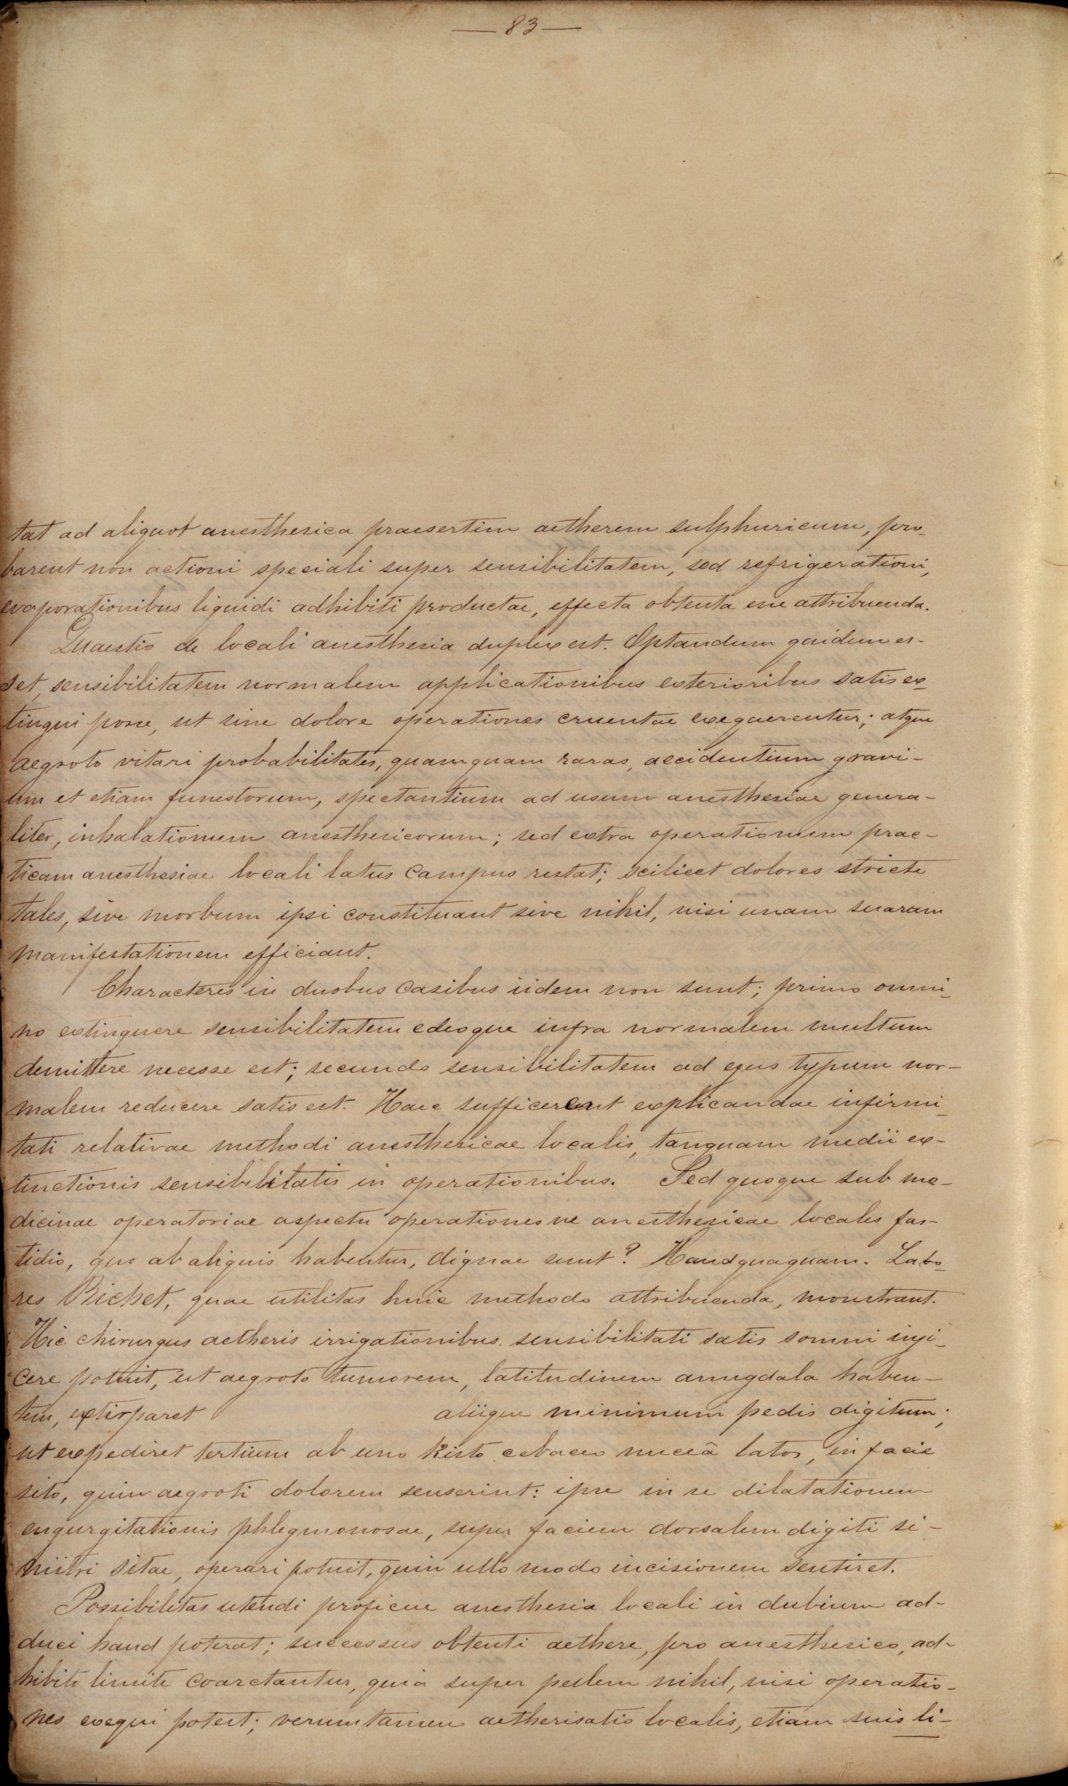 — 83 —
tat ad aliquot anesthesica praesertim aetherem sulphuricum, pro-
barent non actioni speciali super sensibilitatem, sed refrigerationi,
evaporationibus liquidi adhibiti productae, effecta obtenta esse attribuenda.
Quaestio de locali anesthesia duplex est. Optandum quidem es-
set, sensibilitatem normalem applicationibus exterioribus satis ex-
tingui posse, ut sine dolore operationes cruentae exequerentur; atque
aegroto vitari probabilitates, quamquam raras, accidentium gravi-
um et etiam funestorum, spectantium ad usum anesthesiae genera-
liter, inhalationum anesthesicorum; sed extra operationum prac-
ticam anesthesiae locali latus campus restat; scilicet dolores stricte
tales, sive morbum ipsi constituant sive nihil, nisi unam suarum
manifestationem efficiant.
Characteres in duobus casibus iidem non sunt; primo omni-
no extinguere sensibilitatem edeoque infra normalem multum
demittere necesse est; secundo sensibilitatem ad ejus typum nor-
malem reducere satis est. Haec sufficerent explicandae infirmi-
tati relativae methodi anesthesicae localis, tanquam medii ex-
tinctionis sensibilitatis in operationibus. Sed quoque sub me-
dicinae operatoriae aspectu operationes ne anesthesicae locales fas-
tidio, quo ab aliquis habentur, dignae sunt? Haudquaquam. Labo-
res Richet, quae utilitas huic methodo attribuenda, monstrant.
Hic chirurgus aetheris irrigationibus sensibilitati satis somni inji-
cere potuit, ut aegroto tumorem, latitudinem amygdala haben-
tem, extirparet aliique minimum pedis digitum;
ut expediret tertium ab uno kisto cebaceo nuceâ lator, in facie
sito, quin aegroti dolorem senserint: ipse in se dilatationem
engurgitationis phlegmonosae, super faciem dorsalem digiti si-
nistri sitae, operari potuit, quin ullo modo incisionem sentiret.
Possibilitas utendi proficue anesthesia locali in dubium ad-
duci haud poterat; successus obtenti aethere, pro anesthesico, ad-
hibito limite coarctantur, quia super pellem nihil, nisi operatio-
nes exequi potest; verumtamen aetherisatio localis, etiam suis li-